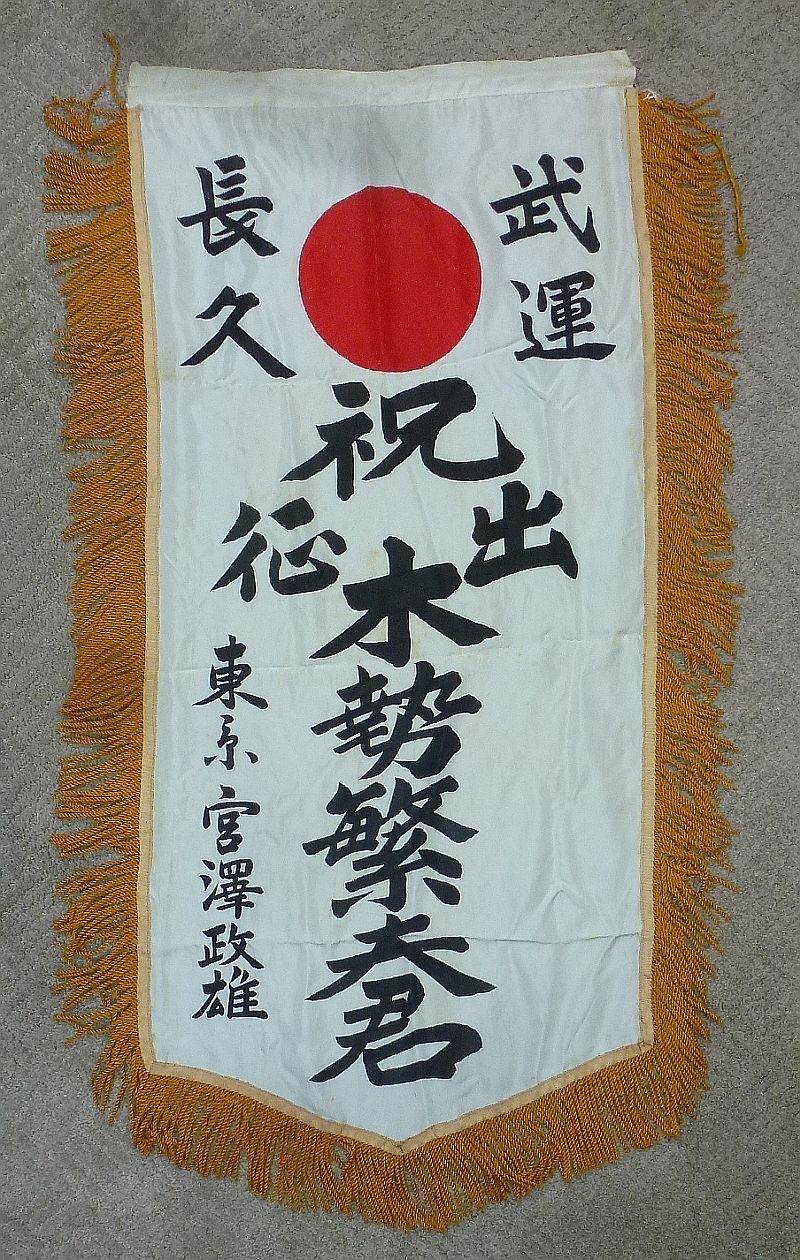 武運
長久
祝
出征
木勢繁夫君
東京 宮澤政雄